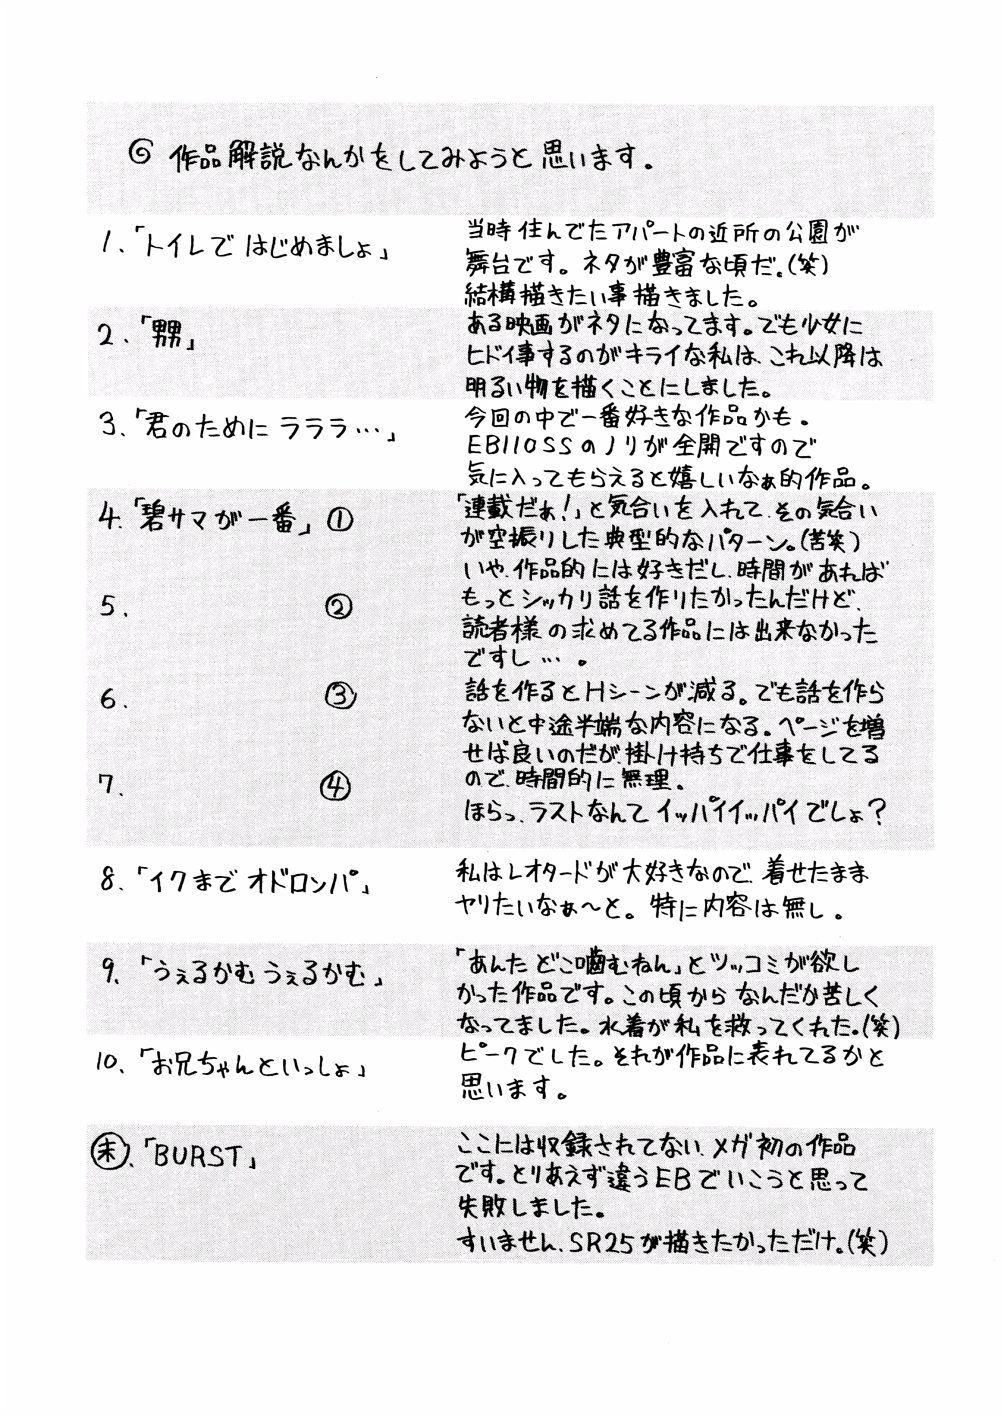 ◎ 作品解説なんかをしてみようと思います。
1、「トイレで はじめましょ」
当時住んでたアパートの近所の公園が
舞台です。ネタが豊富な頃だ。(笑)
結構描きたい事描きました。
2、「嬲」
ある映画がネタになってます。でも少女に
ヒドイ事するのがキライな私は、これ以降は
明るい物を描くことにしました。
3、「君のために ラララ…」
今回の中で一番好きな作品かも。
EB110SSのノリが全開ですので
気に入ってもらえると嬉しいなぁ的作品。
4、「碧サマが一番」①
「連載だぁ!」と気合いを入れて、その気合い
が空振りした典型的なパターン。(苦笑)
いや、作品的には好きだし、時間があれば
5、 ②
もっとシッカリ話を作りたかったんだけど、
読者様の求めてる作品には出来なかった
ですし…。
6、 ③
話を作るとHシーンが減る。でも話を作ら
ないと中途半端な内容になる。ページを増
せば良いのだが、掛け持ちで仕事をしてる
7、 ④
ので、時間的に無理。
ほらっ、ラストなんてイッパイイッパイでしょ?
8、「イクまで オドロンパ」
私はレオタードが大好きなので、着せたまま
ヤリたいなぁ〜と。特に内容は無し。
9、「うぇるかむ うぇるかむ」
「あんた どこ噛むねん」とツッコミが欲し
かった作品です。この頃から なんだか苦しく
なってました。水着が私を救ってくれた。(笑)
10、「お兄ちゃんといっしょ」
ピークでした。それが作品に表れてるかと
思います。
㊍、「BURST」
ここには収録されてない、メグ初の作品
です。とりあえず違うEBでいこうと思って
失敗しました。
すいません、SR25が描きたかっただけ。(笑)